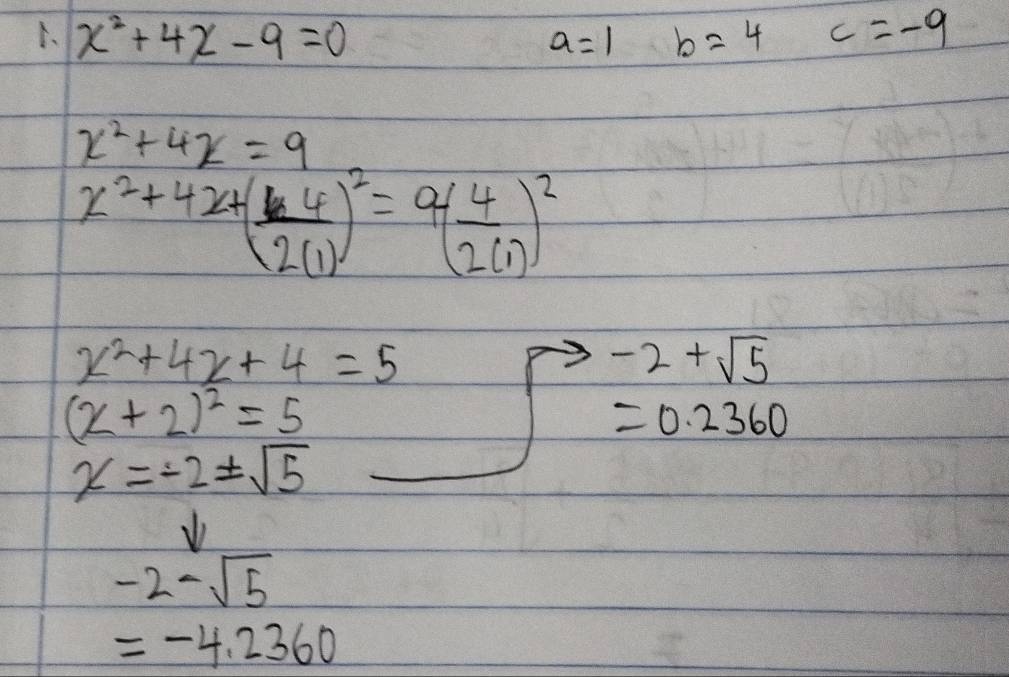 1. x² + 4x - 9 = 0 a = 1 b = 4 c = -9
x² + 4x = 9
x² + 4x + (4/2(1))² = 9 + (4/2(1))²
x² + 4x + 4 = 5
(x + 2)² = 5
x = -2 ± √5
↓
-2 - √5
= -4.2360
→ -2 + √5
= 0.2360